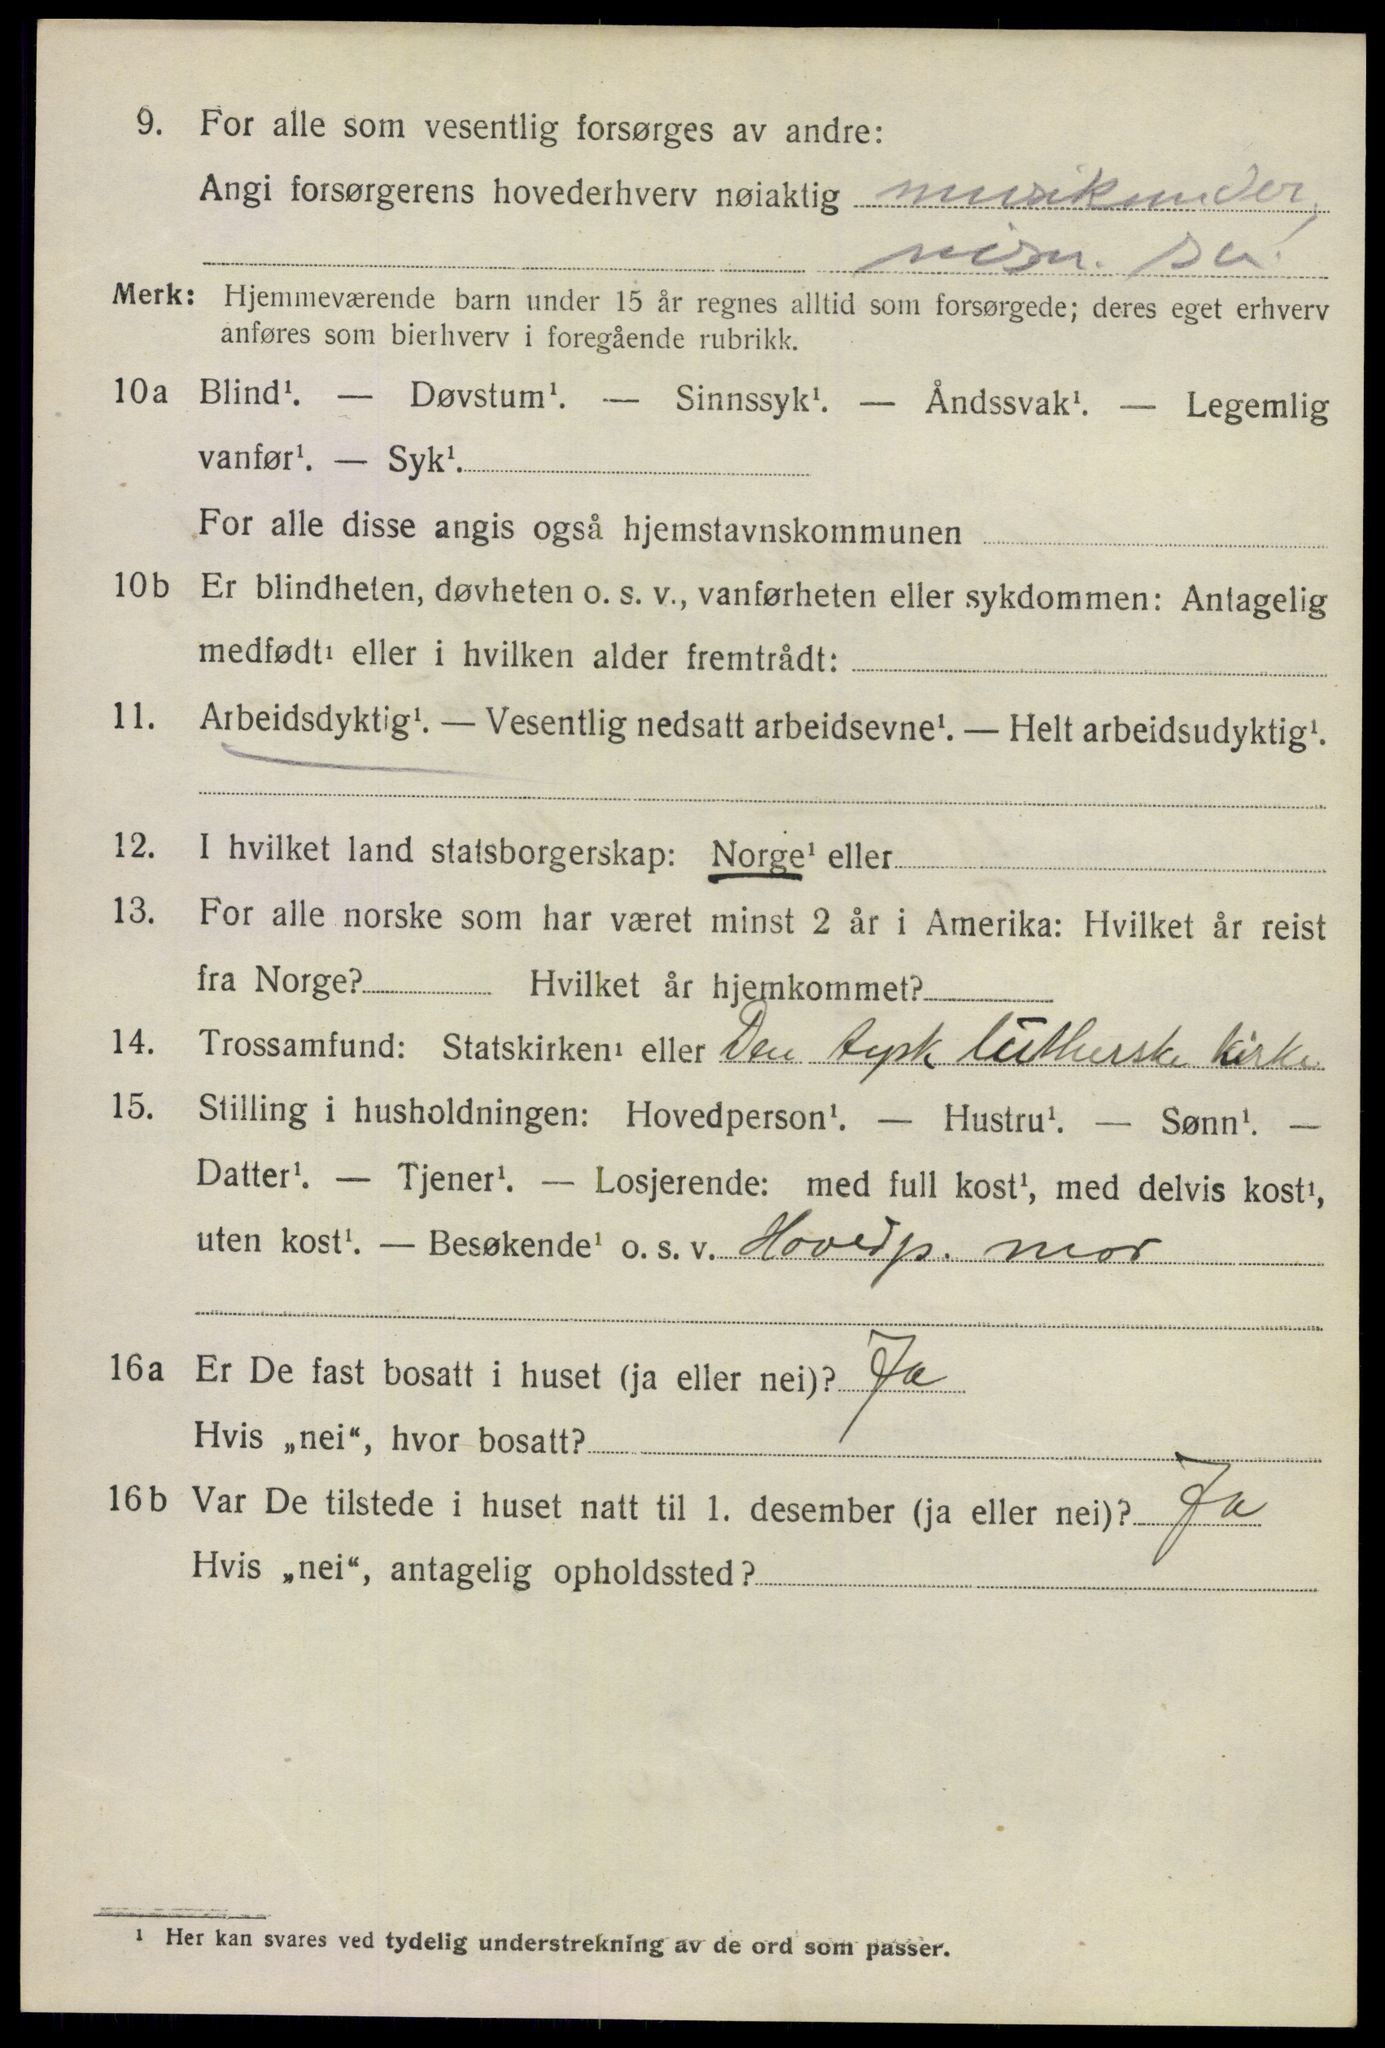 9. For alle som vesentlig forsørges av andre:
Angi forsørgerens hovederhverv nøiaktig musikunder,
Merk: Hjemmeværende barn under 15 år regnes alltid som forsørgede; deres eget erhverv
anføres som bierhverv i foregående rubrikk.
10a Blind¹. — Døvstum¹. — Sinnssyk¹. — Åndssvak¹. — Legemlig
vanfør¹. — Syk¹.
For alle disse angis også hjemstavnskommunen
10b Er blindheten, døvheten o. s. v., vanførheten eller sykdommen: Antagelig
medfødt¹ eller i hvilken alder fremtrådt:
11. Arbeidsdyktig¹. — Vesentlig nedsatt arbeidsevne¹. — Helt arbeidsudyktig¹.
12. I hvilket land statsborgerskap: Norge¹ eller
13. For alle norske som har været minst 2 år i Amerika: Hvilket år reist
fra Norge? Hvilket år hjemkommet?
14. Trossamfund: Statskirken¹ eller Den tysk lütherske kirke
15. Stilling i husholdningen: Hovedperson¹. — Hustru¹. — Sønn¹. —
Datter¹. — Tjener¹. — Losjerende: med full kost¹, med delvis kost¹,
uten kost¹. — Besøkende¹ o. s. v. Hovedp. mor
16a Er De fast bosatt i huset (ja eller nei)? Ja
Hvis „nei“, hvor bosatt?
16b Var De tilstede i huset natt til 1. desember (ja eller nei)? Ja
Hvis „nei“, antagelig opholdssted?
¹ Her kan svares ved tydelig understrekning av de ord som passer.